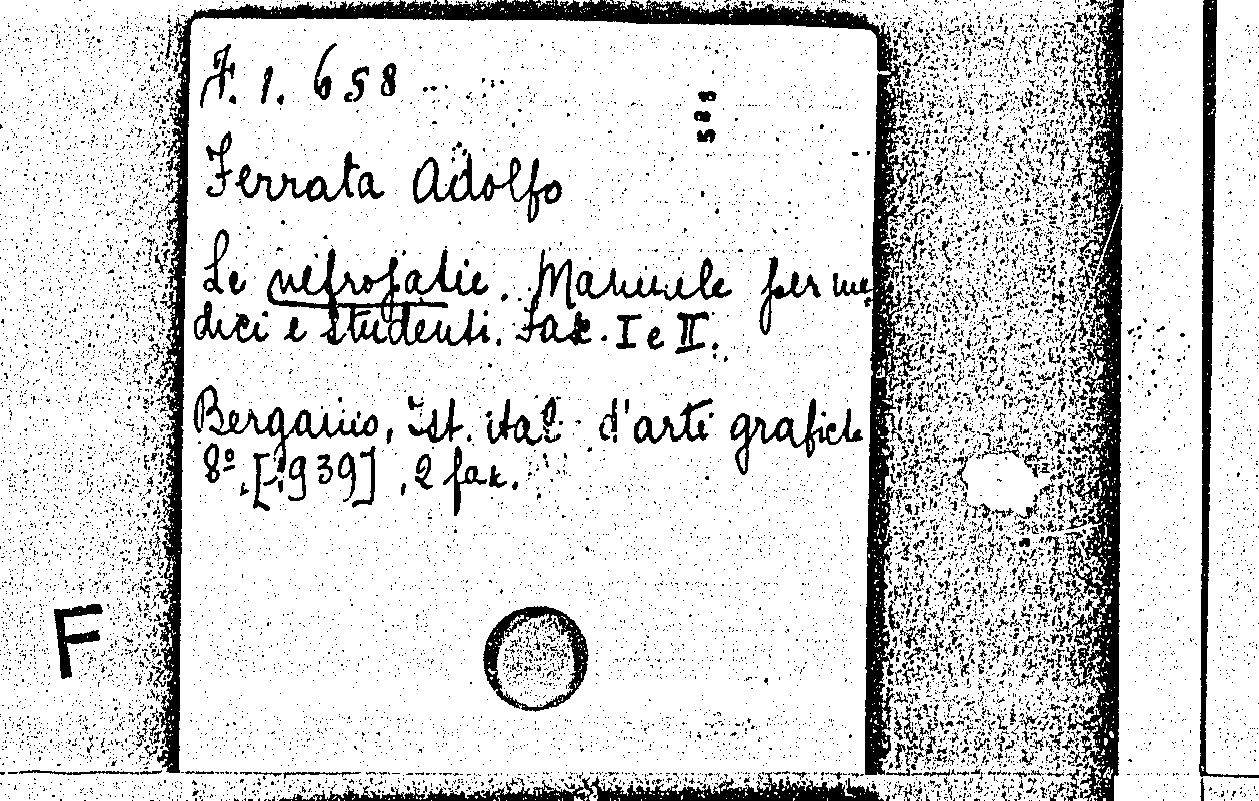 F. 1. 658
588
Ferrata Adolfo
Le nefropatie. Manuale per me
dici e studenti. Fax. I e II.
Bergamo, Ist. ital. d'arti grafiche
8º, [1939], 2 fax.
F